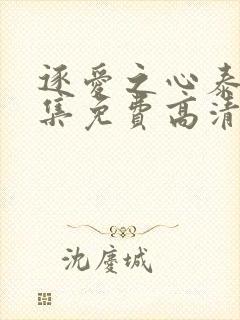 逐爱之心泰
集免费高清
沈庆城